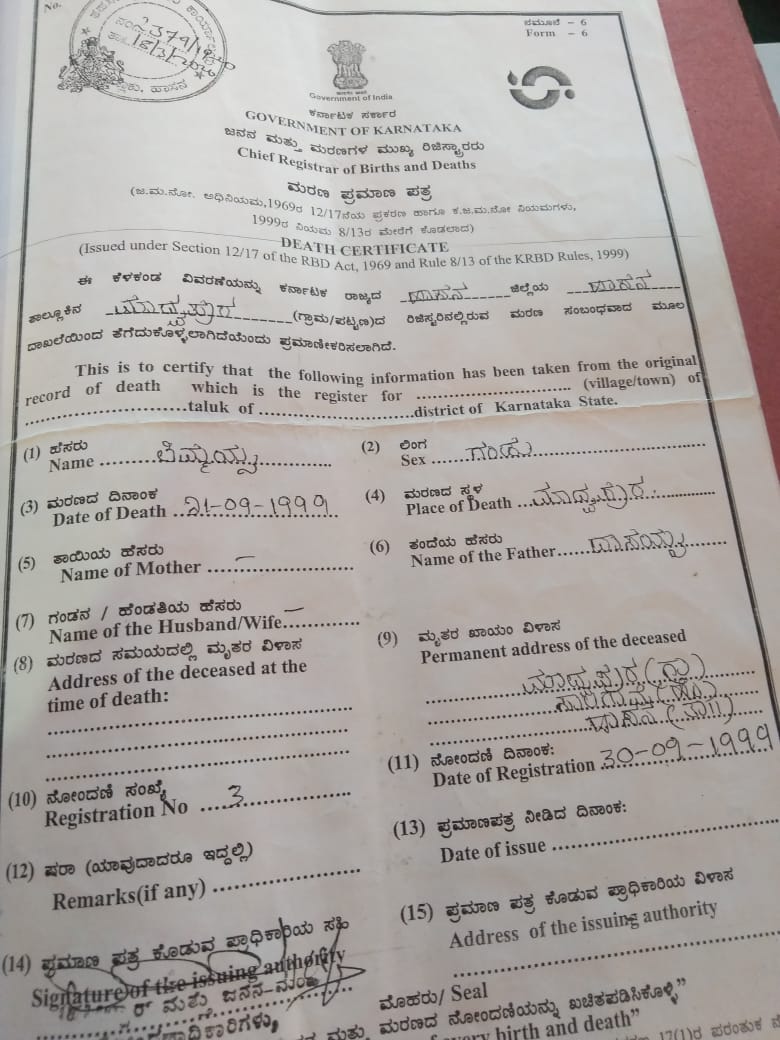 No.
ನಮೂನೆ - 6
Form - 6
Government of India
ಕರ್ನಾಟಕ ಸರ್ಕಾರ
GOVERNMENT OF KARNATAKA
ಜನನ ಮತ್ತು ಮರಣಗಳ ಮುಖ್ಯ ರಿಜಿಸ್ಟ್ರಾರರು
Chief Registrar of Births and Deaths
ಮರಣ ಪ್ರಮಾಣ ಪತ್ರ
(ಜ.ಮ.ನೋ. ಅಧಿನಿಯಮ,1969ರ 12/17ನೆಯ ಪ್ರಕರಣ ಹಾಗೂ ಕ.ಜ.ಮ.ನೋ ನಿಯಮಗಳು,
1999ರ ನಿಯಮ 8/13ರ ಮೇರೆಗೆ ಕೊಡಲಾದ)
DEATH CERTIFICATE
(Issued under Section 12/17 of the RBD Act, 1969 and Rule 8/13 of the KRBD Rules, 1999)
ಈ ಕೆಳಕಂಡ ವಿವರಣೆಯನ್ನು ಕರ್ನಾಟಕ ರಾಜ್ಯದ ಹಾಸನ ಜಿಲ್ಲೆಯ ಹಾಸನ
ತಾಲ್ಲೂಕಿನ (ಗ್ರಾಮ/ಪಟ್ಟಣ)ದ ರಿಜಿಸ್ಟರಿನಲ್ಲಿರುವ ಮರಣ ಸಂಬಂಧವಾದ ಮೂಲ
ದಾಖಲೆಯಿಂದ ತೆಗೆದುಕೊಳ್ಳಲಾಗಿದೆಯೆಂದು ಪ್ರಮಾಣೀಕರಿಸಲಾಗಿದೆ.
This is to certify that the following information has been taken from the original
record of death which is the register for .............................. (village/town) of
..............................taluk of ..............................district of Karnataka State.
(1) ಹೆಸರು
Name
(2) ಲಿಂಗ
Sex ...... ಗಂಡು
(3) ಮರಣದ ದಿನಾಂಕ
Date of Death ..21-09-1999
(4) ಮರಣದ ಸ್ಥಳ
Place of Death
(5) ತಾಯಿಯ ಹೆಸರು
Name of Mother ...—...
(6) ತಂದೆಯ ಹೆಸರು
Name of the Father......
(7) ಗಂಡನ / ಹೆಂಡತಿಯ ಹೆಸರು
Name of the Husband/Wife..—..
(8) ಮರಣದ ಸಮಯದಲ್ಲಿ ಮೃತರ ವಿಳಾಸ
Address of the deceased at the
time of death:
(9) ಮೃತರ ಖಾಯಂ ವಿಳಾಸ
Permanent address of the deceased
ಹಾಸನ (ತಾ||)
(10) ನೋಂದಣಿ ಸಂಖ್ಯೆ
Registration No ..... 3
(11) ನೋಂದಣಿ ದಿನಾಂಕ:
Date of Registration 30-09-1999
(12) ಷರಾ (ಯಾವುದಾದರೂ ಇದ್ದಲ್ಲಿ)
Remarks(if any)
(13) ಪ್ರಮಾಣಪತ್ರ ನೀಡಿದ ದಿನಾಂಕ:
Date of issue
(14) ಪ್ರಮಾಣ ಪತ್ರ ಕೊಡುವ ಪ್ರಾಧಿಕಾರಿಯ ಸಹಿ
Signature of the issuing authority
(15) ಪ್ರಮಾಣ ಪತ್ರ ಕೊಡುವ ಪ್ರಾಧಿಕಾರಿಯ ವಿಳಾಸ
Address of the issuing authority
ಮೊಹರು/ Seal
ಮತ್ತು ಮರಣದ ನೋಂದಣಿಯನ್ನು ಖಚಿತಪಡಿಸಿಕೊಳ್ಳಿ”
birth and death”
17(1)ರ ಪರಂತುಕ